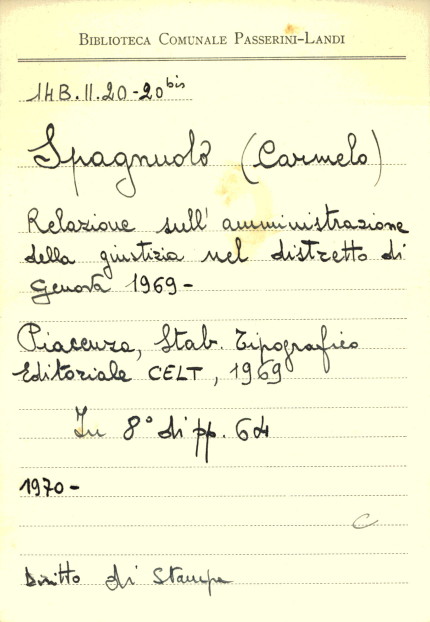 BIBLIOTECA COMUNALE PASSERINI-LANDI
14B.II.20-20bis
Spagnuolo (Carmelo)
Relazione sull'amministrazione
della giustizia nel distretto di
Genova 1969-
Piacenza, Stab. Tipografico
Editoriale CELT, 1969
In 8° di pp. 64
1970-
C
Diritto di Stampa